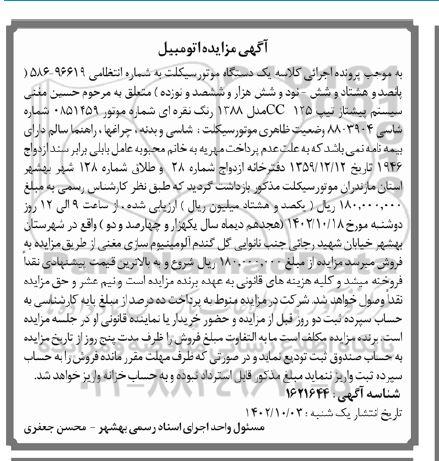 آگهی مزایده اتومبیل
به موجب پرونده اجرائی کلاسه یک دستگاه موتورسیکلت به شماره انتظامی ۹۶۶۱۹-۵۸۶ (
پانصد و هشتاد و شش - نود و شش هزار و ششصد و نوزده ) متعلق به مرحوم حسین مغنی
سیستم پیشتاز تیپ CC ۱۲۵مدل ۱۳۸۸ رنگ نقره ای شماره موتور ۰۸۵۱۴۵۹ شماره
شاسی ۸۸۰۳۹۰۴ وضعیت ظاهری موتورسیکلت : شاسی و بدنه ، چراغها ، راهنما سالم دارای
بیمه نامه نمی باشد که به علت عدم پرداخت مهریه به خانم محبوبه عامل بابلی برابر سند ازدواج
۱۹۴۶ تاریخ ۱۳۵۹/۱۲/۱۲ دفترخانه ازدواج شماره ۲۸ و طلاق شماره ۱۲۸ شهر بهشهر
استان مازندران موتورسیکلت مذکور بازداشت گردید که طبق نظر کارشناس رسمی به مبلغ
۱۸۰,۰۰۰,۰۰۰ ریال ( یکصد و هشتاد میلیون ریال ) ارزیابی شده ، از ساعت ۹ الی ۱۲ روز
دوشنبه مورخ ۱۴۰۲/۱۰/۱۸ (هجدهم دیماه سال یکهزار و چهارصد و دو) واقع در شهرستان
بهشهر خیابان شهید رجائی جنب نانوایی گل گندم آلومینیوم سازی مغنی از طریق مزایده به
فروش میرسد مزایده از مبلغ ۱۸۰,۰۰۰,۰۰۰ ریال شروع و به بالاترین قیمت پیشنهادی نقداً
فروخته میشد و کلیه هزینه های قانونی به عهده برنده مزایده است و نیم عشر و حق مزایده
نقداً وصول خواهد شد. شرکت در مزایده منوط به پرداخت ده درصد از مبلغ پایه کارشناسی به
حساب سپرده ثبت دو روز قبل از مزایده و حضور خریدار یا نماینده قانونی او در جلسه مزایده
است. برنده مزایده مکلف است ما به التفاوت مبلغ فروش را ظرف مدت پنج روز از تاریخ مزایده
به حساب صندوق ثبت تودیع نماید و در صورتی که ظرف مهلت مقرر مانده فروش را به حساب
سپرده ثبت واریز ننماید مبلغ مذکور قابل استرداد نبوده و به حساب خزانه واریز خواهد شد.
شناسه آگهی : ۱۶۲۱۶۴۴
تاریخ انتشار یک شنبه : ۱۴۰۲/۱۰/۰۳
مسئولواحد اجرای اسناد رسمی بهشهر - محسن جعفری